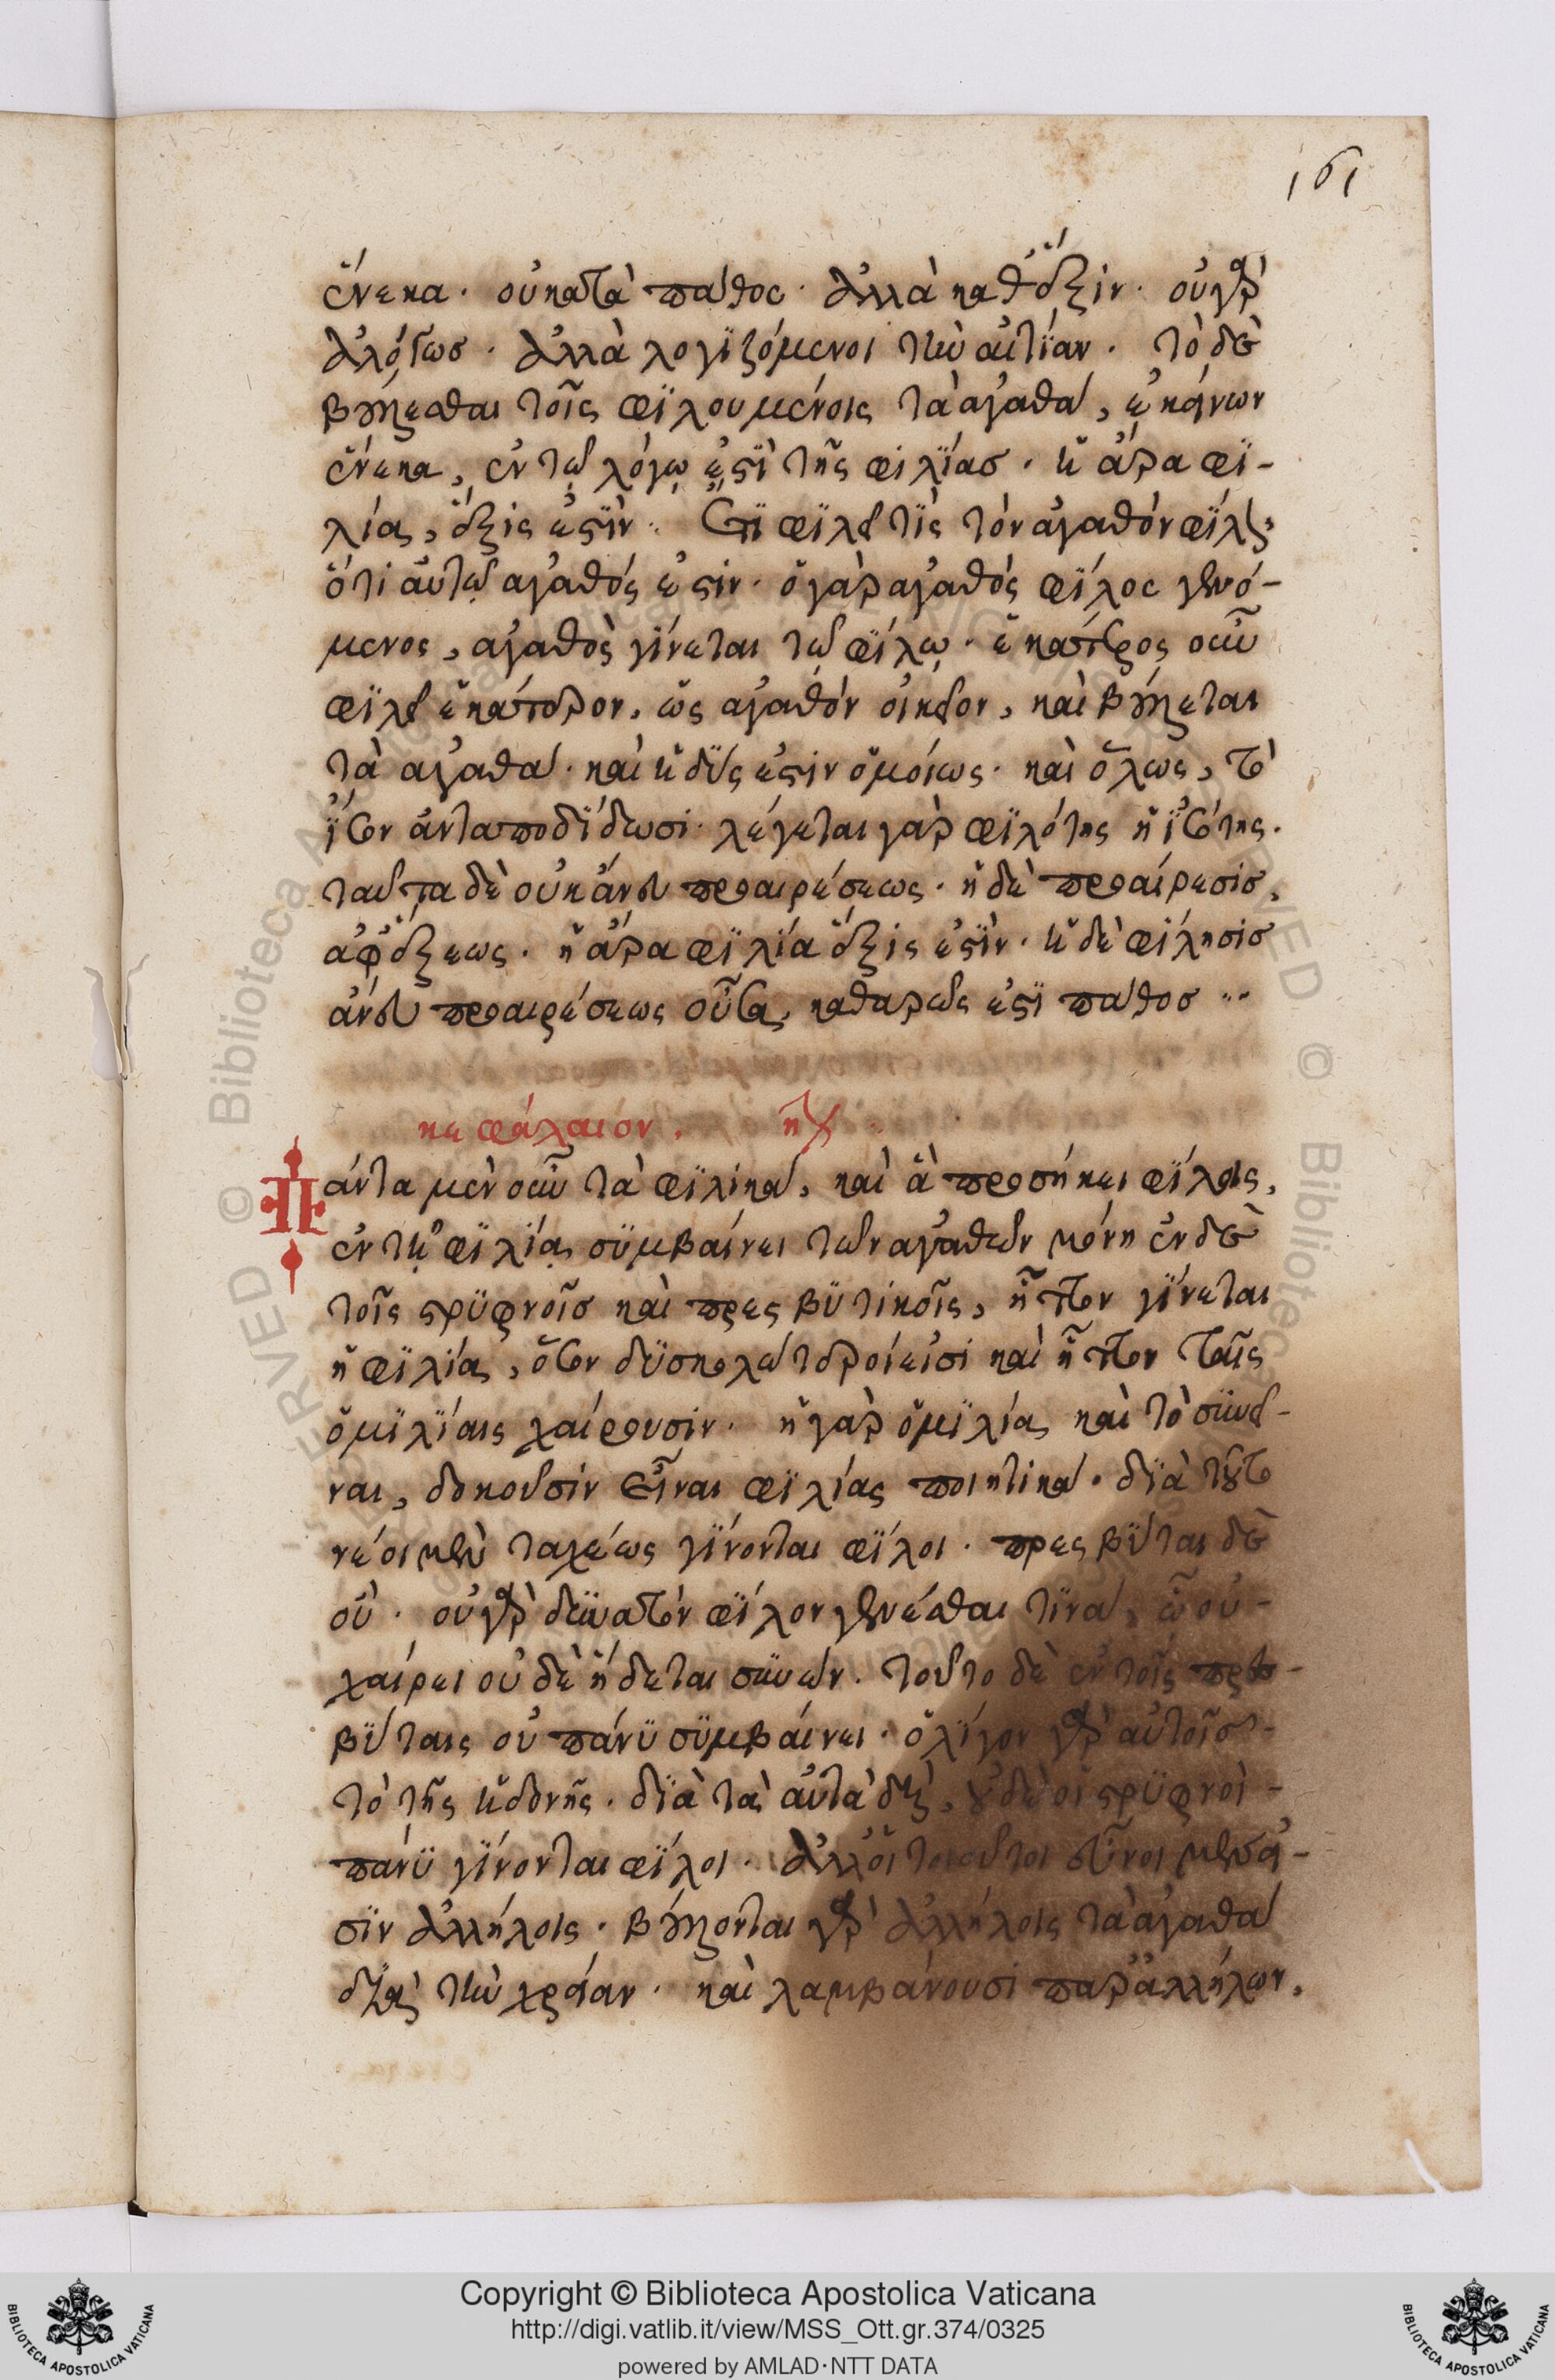 161
ἕνεκα· οὐ κατὰ πάθος· ἀλλὰ καθ' ἕξιν· οὐ γὰρ
ἀλόγως· ἀλλὰ λογϊζόμενοι τὴν αἰτΐαν· τὸ δὲ
βούλεσθαι τοῖς φϊλουμένοις τὰ ἀγαθὰ, ἐκείνων
ἕνεκα, ἐν τῷ λόγῳ ἐστῒ τῆς φιλΐας· ἡ ἄρα φϊ-
λία, ἕξις ἐστῒν·· Ὅτϊ φϊλεῖ τῒς τὸν ἀγαθὸν φΐλον,
ὅτι αὐτῷ ἀγαθός ἐστιν· ὁ γὰρ ἀγαθὸς φΐλος γενό-
μενος, ἀγαθὸς γΐνεται τῷ φΐλῳ· ἑκάτερος οὖν
φϊλεῖ ἑκάτερον, ὡς ἀγαθὸν οἰκεῖον, καὶ βούλεται
τὰ ἀγαθὰ· καὶ ἡδύς ἐστιν ὁμοίως· καὶ ὅλως, τὸ
ἴσον ἀνταποδΐδωσι· λέγεται γὰρ φϊλότης ἡ ἰσότης·
ταῦτα δὲ οὐκ ἄνευ προαιρέσεως· ἡ δὲ προαίρεσις,
ἀφ' ἕξεως· ἡ ἄρα φϊλία ἕξις ἐστῒν· ἡ δὲ φίλησις
ἄνευ προαιρέσεως οὖσα, καθαρῶς ἐστῒ πάθος··
κεφάλαιον.
Πάντα μὲν οὖν τὰ φϊλικὰ, καὶ ἃ προσήκει φΐλοις,
ἐν τῇ φϊλΐᾳ συμβαίνει τῶν ἀγαθῶν μόνῃ ἐν δὲ
τοῖς στρϋφνοῖς καὶ πρεσβϋτικοῖς, ἧττον γΐνεται
ἡ φϊλία, ὅσον δϋσκολώτεροί εἰσι καὶ ἧττον ταῖς
ὁμϊλΐαις χαίρουσιν· ἡ γὰρ ὁμϊλία καὶ τὸ συνεῖ-
ναι, δοκοῦσιν εἶναι φϊλίας ποιητικὰ· δϊὰ τοῦτο
νέοι μὲν ταχέως γΐνονται φΐλοι· πρεσβῦται δὲ
οὔ· οὐ γὰρ δυνατὸν φΐλον γενέσθαι τϊνὰ, ᾧ οὐ-
χαίρει οὐδὲ ἥδεται συνών· τοῦτο δὲ ἐν τοῖς πρεσ-
βΰταις οὐ πάνϋ συμβαίνει· ὀλΐγον γὰρ αὐτοῖς-
τὸ τῆς ἡδονῆς· δϊὰ τὰ αὐτὰ δὲ, οὐδὲ οἱ στρϋφνοὶ-
πάνϋ γΐνονται φΐλοι· ἀλλ' οἱ τοιοῦτοι εὖνοι μὲν εἰ-
σῒν ἀλλήλοις· βούλονται γὰρ ἀλλήλοις τὰ ἀγαθὰ
διὰ τὴν χρείαν· καὶ λαμβάνουσι παρ' ἀλλήλων,
© Biblioteca Apostolica Vaticana
Copyright © Biblioteca Apostolica Vaticana
http://digi.vatlib.it/view/MSS_Ott.gr.374/0325
powered by AMLAD·NTT DATA
BIBLIOTECA APOSTOLICA VATICANA
BIBLIOTECA APOSTOLICA VATICANA